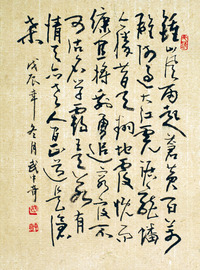 鍾山風雨起蒼黄百万
雄师过大江虎踞龍盘
今勝昔天翻地覆慨而
慷宜将剩勇追穷寇不
可沽名学霸王天若有
情天亦老人间正道是滄
桑 戊辰年冬月武中奇